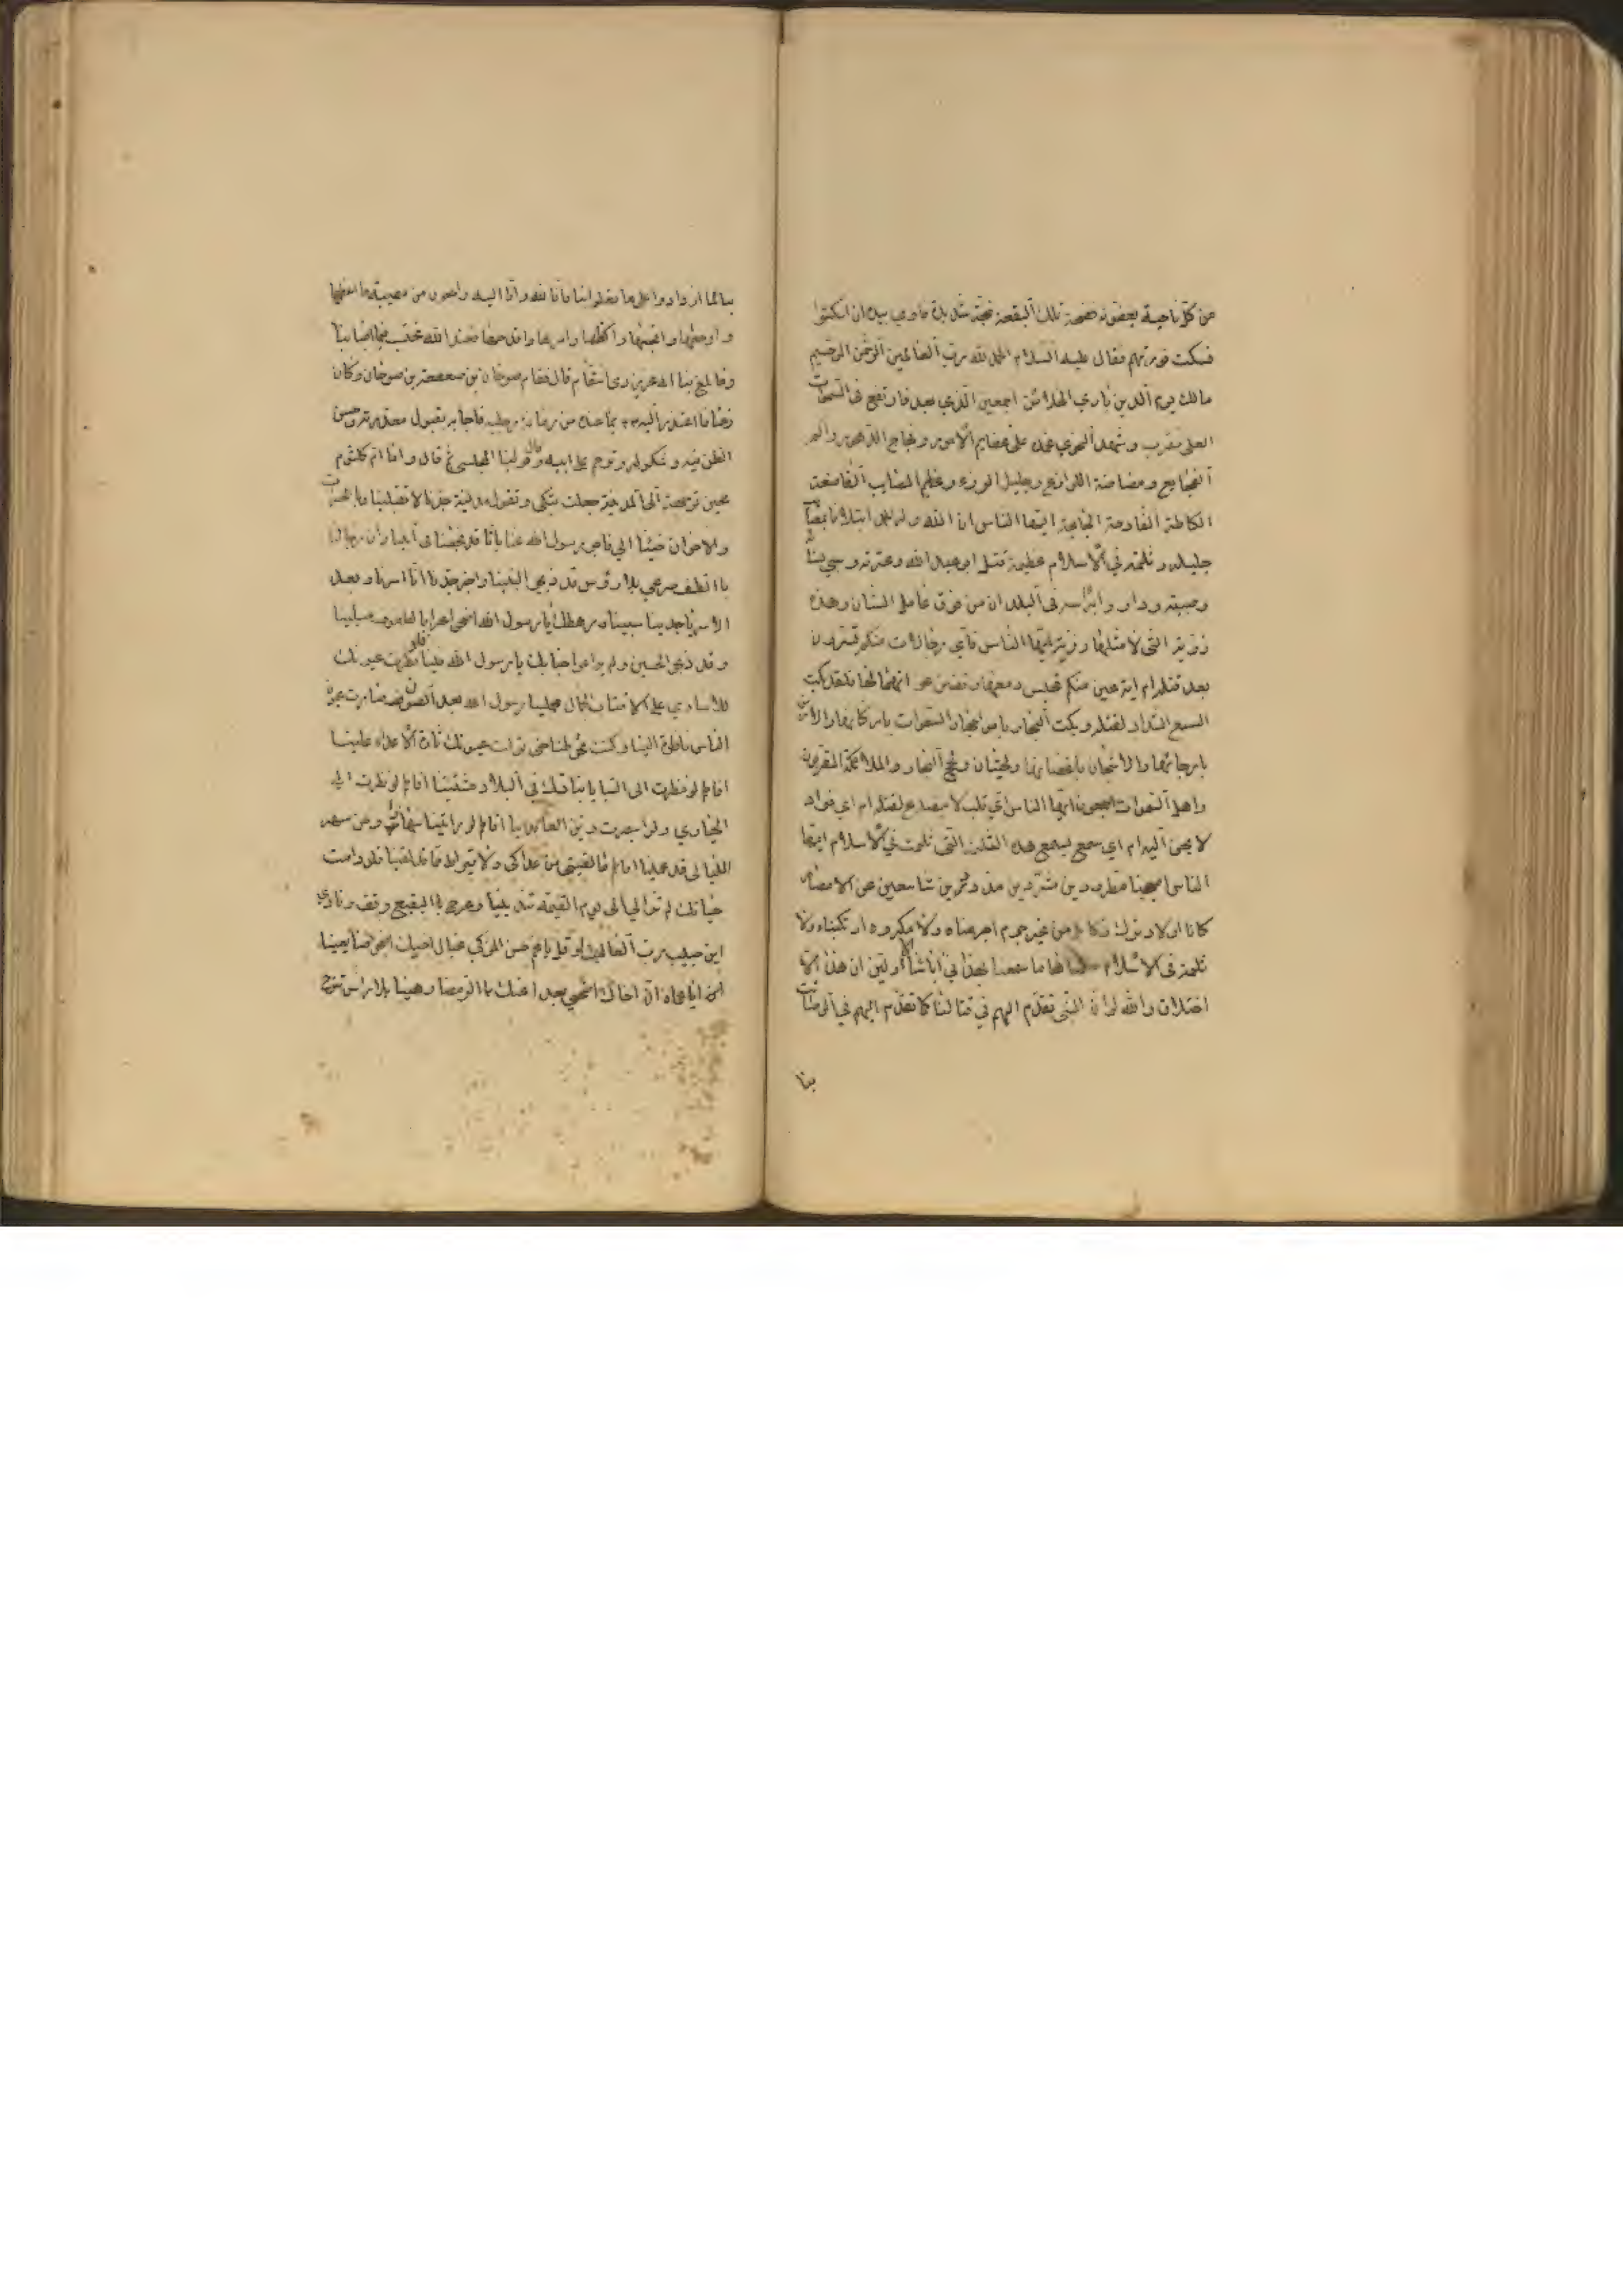 من كل ناحية يعزونه فضجت تلك البقعة ضجة شديدة فاومى بيده ان اسكتوا
فسكت فورتهم فقال عليه السلام الحمد لله رب العالمين الرحمن الرحيم
مالك يوم الدين باري الخلائق اجمعين الذي بعد فارتفع في السموات
العلى فقرب وشهد النجوى نحمده على عظايم الامور وفجايع الدهور والم
الفجايع ومضاضة اللواذع وجليل الرزء وعظيم المصايب الفاضعة
الكاظة الفادحة الجايحة ايها الناس ان الله وله الحمد ابتلانا بمصائب
جليلة وثلمة في الاسلام عظيمة قتل ابو عبد الله وعترته وسبي نسائه
وصبيته وداروا براسه في البلدان من فوق عامل السنان وهذه
رزية التي لا مثلها رزية ايها الناس فاي رجالات منكم تسرون
بعد قتله ام اية عين منكم تحبس دمعها وتضن عن انهمالها فلقد بكت
السبع الشداد لقتله وبكت البحار بامواجها والسموات باركانها والارض
بارجائها والاشجان باغصانها والحيتان ولجج البحار والملائكة المقربون
واهل السموات اجمعون ايها الناس اي قلب لا ينصدع لقتله ام اي فواد
لا يحن اليه ام اي سمع يسمع هذه الثلمة التي ثلمت في الاسلام ايها
الناس اصبحنا مطرودين مشردين مذودين شاسعين عن الامصار
كانا اولاد ترك وكابل من غير جرم اجرمناه ولا مكروه ارتكبناه ولا
ثلمة في الاسلام ثلمناها ما سمعنا بهذا في ابائنا الاولين ان هذا الا
اختلاق والله لو ان النبي تقدم اليهم في قتالنا كما تقدم اليهم في الوصايت
بنا
بنا لما ازدادوا على ما فعلوا بنا فانا لله وانا اليه راجعون من مصيبة ما اعظمها
واوجعها وافجعها واكظها وامرها وافدحها فعند الله نحتسب فيما اصابنا
وما بلغ بنا انه عزيز ذى انتقام قال فقام صوحان بن صعصعة بن صوحان وكان
زمنا فاعتذر اليه بما عنده من زمانة رجليه فاجابه بقبول معذرته وحسن
الظن فيه وشكر له وترحم على ابيه وقال مولينا المجلسي قال واما ام كلثوم
فحين توجهت الى المدينة جعلت تبكي وتقول مدينة جدنا لا تقبلينا فبالحسرات
والاحزان جئنا الا فاخبر رسول الله عنا بانا قد فجعنا في ابينا وان رجالنا
بالطف صرعى بلا رؤس قد ذبحوا البنينا واخبر جدنا انا اسرنا وبعد
الاسر يا جدنا سبينا ورهطك يا رسول الله اضحى عرايا بالطفوف مسلبينا
وقد ذبحوا الحسين ولم يراعوا جنابك يا رسول الله فينا فلو نظرت عيونك
للاسارى على اقتاب الجمال محملينا رسول الله بعد الصون صارت عيون
الناس ناظرة الينا وكنت تحوطنا حتى تولت عيونك ثارت الاعداء علينا
افاطم لو نظرت الى السبايا بناتك في البلاد مشتتينا افاطم لو نظرت الى
الحيارى ولو ابصرت زين العابدينا افاطم لو رايتينا سهارى ومن سهر
الليالى قد عمينا افاطم ما لقيتي من عداكى ولا قيراط مما قد لقينا فلو دامت
حياتك لم تزالي الى يوم القيمة تندبينا وعرج بالبقيع وقف وناد
ابن حبيب رب العالمينا وقل يا عم حسن المزكى عيال اخيك اضحوا ضايعينا
ايا عماه ان اخاك اضحى بعيدا عنك بالرمضا رهينا بلا راس تنوح